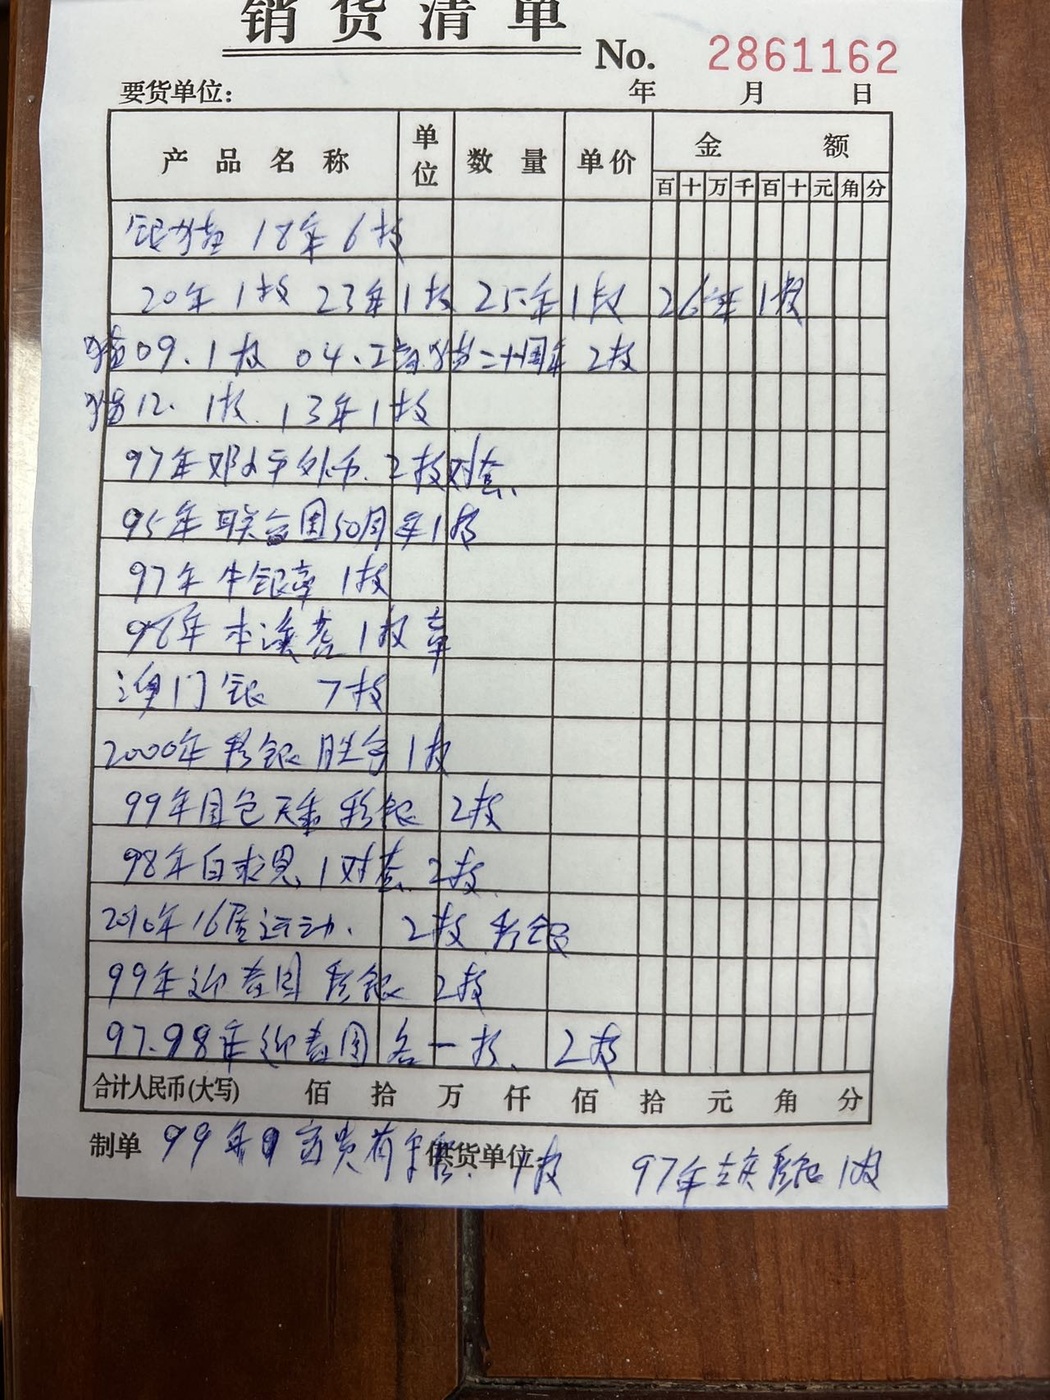 销货清单
No. 2861162
要货单位： 年 月 日
产品名称 单位 数量 单价 金额
百 十 万 千 百 十 元 角 分
银猫 18年 6枚
20年 1枚 23年 1枚 25年 1枚 26年 1枚
猫09. 1枚 04. 工商 二十周年 2枚
猫12. 1枚. 13年 1枚
97年邓小平外币. 2枚对套.
95年联合国50周年1枚
97年 牛银章 1枚
96年 本溪 1枚章
澳门银 7枚
2000年 彩银 1枚
99年国色天香 彩银 2枚
98年白求恩 1对套 2枚
2010年16届运动. 2枚 彩银
99年迎春图 彩银 2枚
97.98年迎春图 各一枚. 2枚
合计人民币(大写) 佰 拾 万 仟 佰 拾 元 角 分
制单 99年 富贵荷 供货单位 枚 97年 彩银 1枚